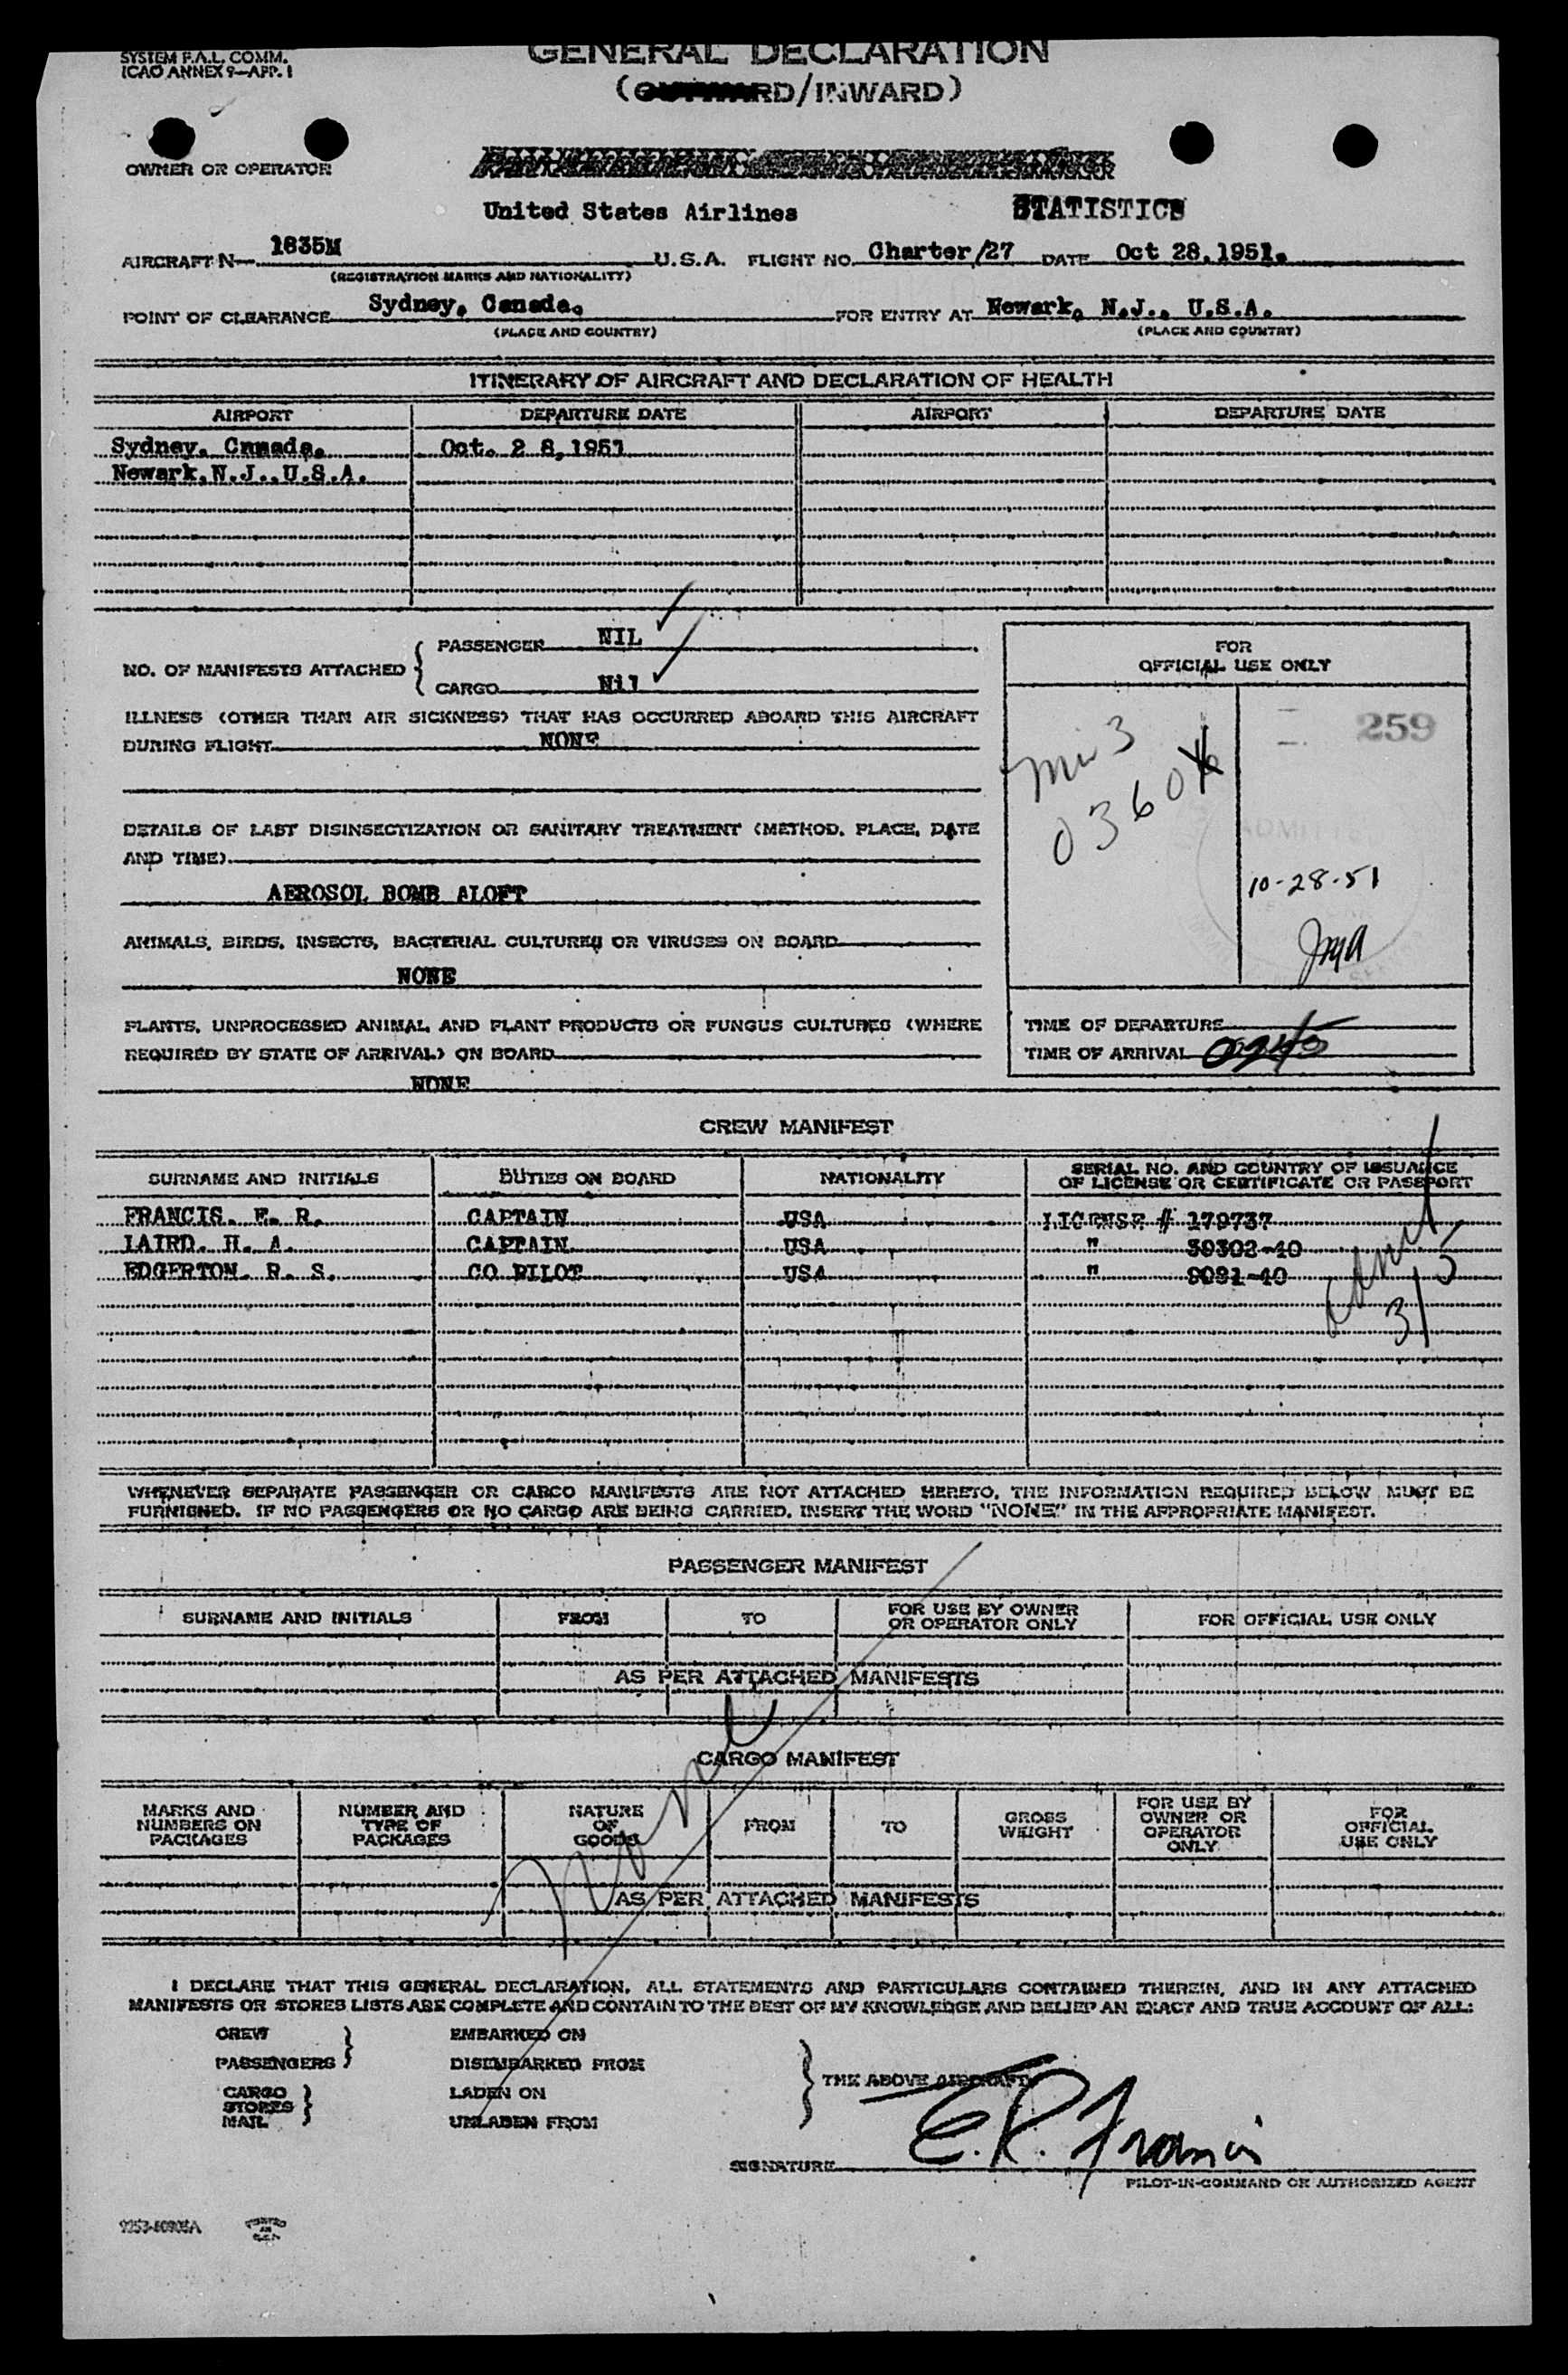 SYSTEM F.A.L. COMM.
ICAO ANNEX 9—APP. 1
GENERAL DECLARATION
(OUTWARD/INWARD)
OWNER OR OPERATOR
United States Airlines STATISTICS
AIRCRAFT N— 1835M U.S.A. FLIGHT NO. Charter/27 DATE Oct 28, 1951.
(REGISTRATION MARKS AND NATIONALITY)
POINT OF CLEARANCE Sydney, Canada. FOR ENTRY AT Newark, N.J., U.S.A.
(PLACE AND COUNTRY) (PLACE AND COUNTRY)
ITINERARY OF AIRCRAFT AND DECLARATION OF HEALTH
AIRPORT DEPARTURE DATE AIRPORT DEPARTURE DATE
Sydney, Canada. Oct. 2 8, 1951
Newark, N.J., U.S.A.
NO. OF MANIFESTS ATTACHED { PASSENGER NIL
CARGO Nil
ILLNESS (OTHER THAN AIR SICKNESS) THAT HAS OCCURRED ABOARD THIS AIRCRAFT
DURING FLIGHT NONE
DETAILS OF LAST DISINSECTIZATION OR SANITARY TREATMENT (METHOD, PLACE, DATE
AND TIME)
AEROSOL BOMB ALOFT
ANIMALS, BIRDS, INSECTS, BACTERIAL CULTURES OR VIRUSES ON BOARD
NONE
PLANTS, UNPROCESSED ANIMAL AND PLANT PRODUCTS OR FUNGUS CULTURES (WHERE
REQUIRED BY STATE OF ARRIVAL) ON BOARD
NONE
FOR
OFFICIAL USE ONLY
259
0360
ADMITTED
10-28-51
TIME OF DEPARTURE
TIME OF ARRIVAL
CREW MANIFEST
SURNAME AND INITIALS DUTIES ON BOARD NATIONALITY SERIAL NO. AND COUNTRY OF ISSUANCE
OF LICENSE OR CERTIFICATE OR PASSPORT
FRANCIS. E. R. CAPTAIN USA LICENSE # 179737
LAIRD. H. A. CAPTAIN USA " 39302-40
EDGERTON. R. S. CO PILOT USA " 9081-40
WHENEVER SEPARATE PASSENGER OR CARGO MANIFESTS ARE NOT ATTACHED HERETO, THE INFORMATION REQUIRED BELOW MUST BE
FURNISHED. IF NO PASSENGERS OR NO CARGO ARE BEING CARRIED, INSERT THE WORD "NONE" IN THE APPROPRIATE MANIFEST.
PASSENGER MANIFEST
SURNAME AND INITIALS FROM TO FOR USE BY OWNER
OR OPERATOR ONLY FOR OFFICIAL USE ONLY
AS PER ATTACHED MANIFESTS
None
CARGO MANIFEST
MARKS AND
NUMBERS ON
PACKAGES NUMBER AND
TYPE OF
PACKAGES NATURE
OF
GOODS FROM TO GROSS
WEIGHT FOR USE BY
OWNER OR
OPERATOR
ONLY FOR
OFFICIAL
USE ONLY
AS PER ATTACHED MANIFESTS
I DECLARE THAT THIS GENERAL DECLARATION, ALL STATEMENTS AND PARTICULARS CONTAINED THEREIN, AND IN ANY ATTACHED
MANIFESTS OR STORES LISTS ARE COMPLETE AND CONTAIN TO THE BEST OF MY KNOWLEDGE AND BELIEF AN EXACT AND TRUE ACCOUNT OF ALL:
CREW } EMBARKED ON
PASSENGERS } DISEMBARKED FROM
CARGO } LADEN ON } THE ABOVE AIRCRAFT
STORES
MAIL UNLADEN FROM
SIGNATURE E. R. Francis
PILOT-IN-COMMAND OR AUTHORIZED AGENT